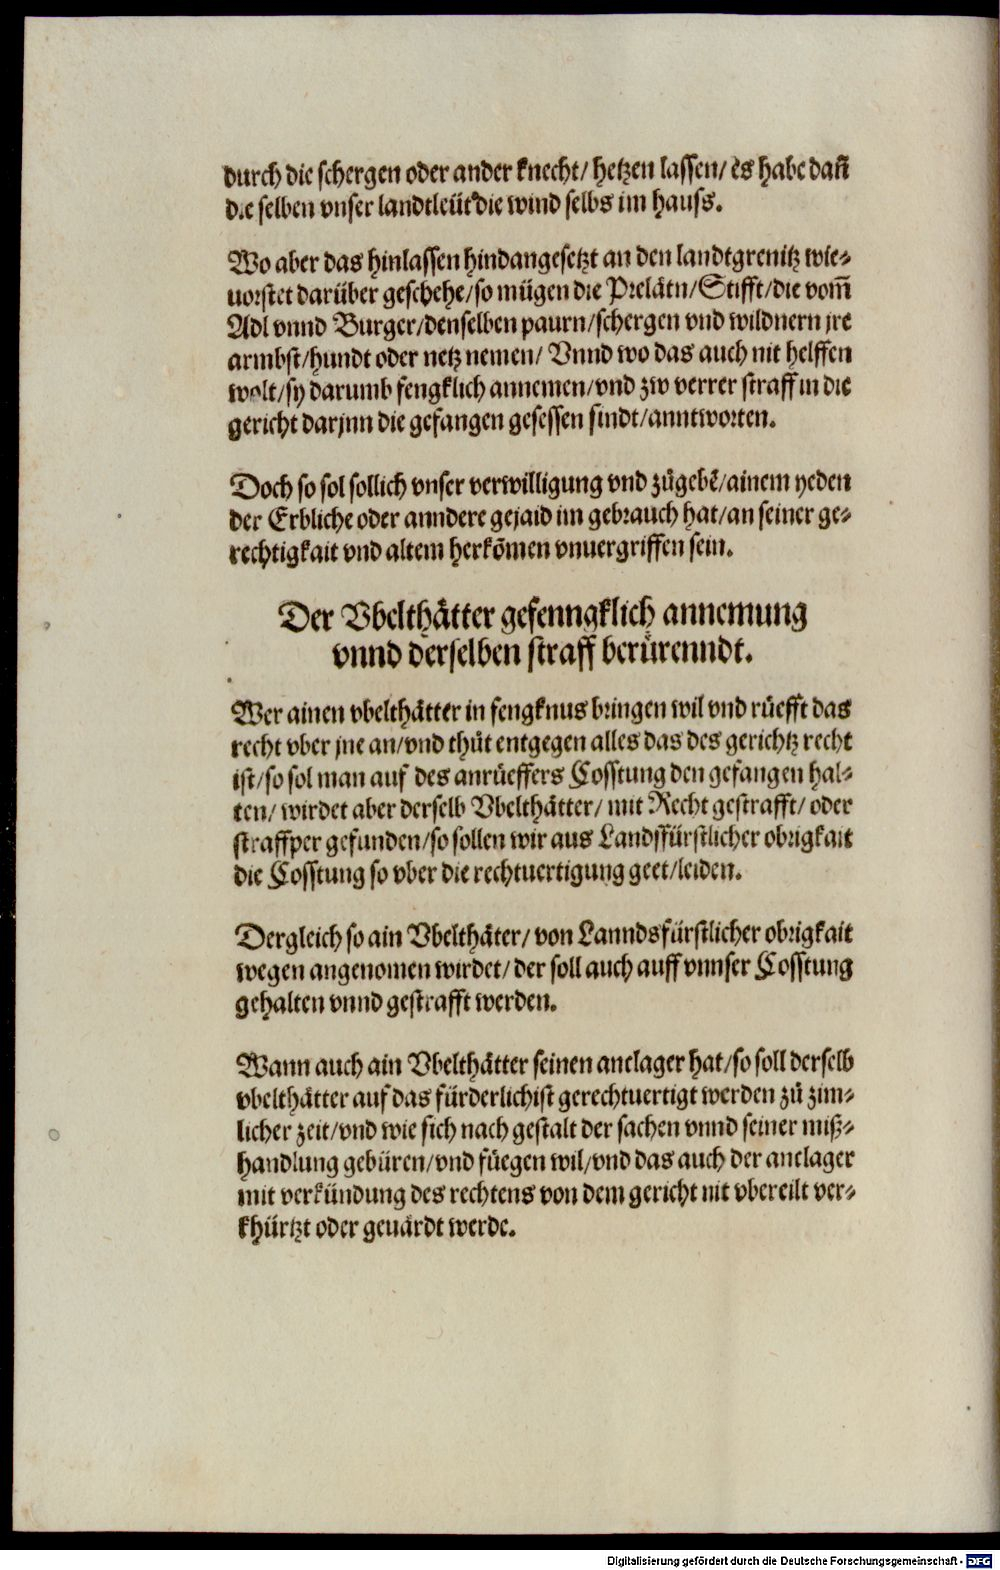 durch die schergen oder ander knecht/ hetzen lassen/ es habe dañ
die selben vnser landtleüt die wind selbs im hauss.
Wo aber das hinlassen hindangesetzt an den landtgrenitz wie⸗
uorstet darüber geschehe/so mügen die Prelätn/Stifft/die vom̃
Adl vnnd Burger/denselben paurn/schergen vnd wildnern jre
armbst/hundt oder netz nemen/ Vnnd wo das auch nit helffen
wolt/sy darumb fengklich annemen/vnd zw verrer straff in die
gericht darjnn die gefangen gesessen sindt/anntworten.
Doch so sol sollich vnser verwilligung vnd zůgebẽ/ainem yeden
der Erbliche oder anndere gejaid im gebrauch hat/an seiner ge⸗
rechtigkait vnd altem herkõmen vnuergriffen sein.
Der Vbelthätter gefenngklich annemung
vnnd derselben straff berürenndt.
Wer ainen vbelthätter in fengknus bringen wil vnd rüefft das
recht vber jne an/vnd thůt entgegen alles das des gerichtz recht
ist/so sol man auf des anrüeffers Cosstung den gefangen hal⸗
ten/ wirdet aber derselb Vbelthätter/ mit Recht gestrafft/ oder
straffper gefunden/so sollen wir aus Landsfürstlicher obrigkait
die Cosstung so vber die rechtuertigung geet/leiden.
Dergleich so ain Vbelthäter/ von Lanndsfürstlicher obrigkait
wegen angenomen wirdet/ der soll auch auff vnnser Cosstung
gehalten vnnd gestrafft werden.
Wann auch ain Vbelthätter seinen anclager hat/so soll derselb
vbelthätter auf das fürderlichist gerechtuertigt werden zů zim⸗
licher zeit/vnd wie sich nach gestalt der sachen vnnd seiner miß⸗
handlung gebüren/vnd füegen wil/vnd das auch der anclager
mit verkündung des rechtens von dem gericht nit vbereilt ver⸗
khürtzt oder geuärdt werde.
Digitalisierung gefördert durch die Deutsche Forschungsgemeinschaft - DFG